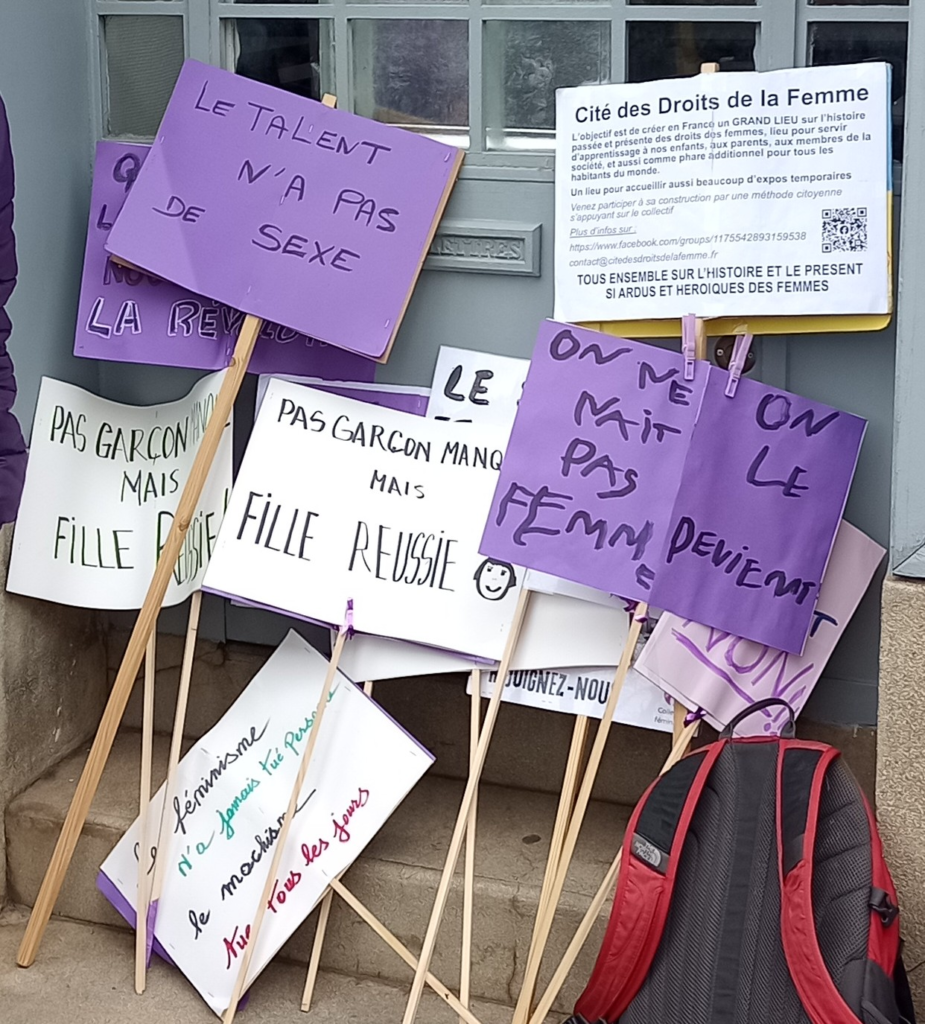 LE TALENT
N'A PAS
DE SEXE
LA
Cité des Droits de la Femme
L'objectif est de créer en France un GRAND LIEU sur l'histoire
passée et présente des droits des femmes, lieu pour servir
d'apprentissage à nos enfants, aux parents, aux membres de la
société, et aussi comme phare additionnel pour tous les
habitants du monde.
Un lieu pour accueillir aussi beaucoup d'expos temporaires
Venez participer à sa construction par une méthode citoyenne
s'appuyant sur le collectif
Plus d'infos sur :
https://www.facebook.com/groups/1175542893159538
contact@citedesdroitsdelafemme.fr
TOUS ENSEMBLE SUR L'HISTOIRE ET LE PRESENT
SI ARDUS ET HEROIQUES DES FEMMES
LE
PAS GARÇON
MAIS
FILLE
PAS GARÇON MANQ
MAIS
FILLE REUSSIE
ON NE
NAIT
PAS
FEMM
E
ON
LE
DEVIENT
NON
le féminisme
n'a jamais tué personne
le machisme
tue tous les jours